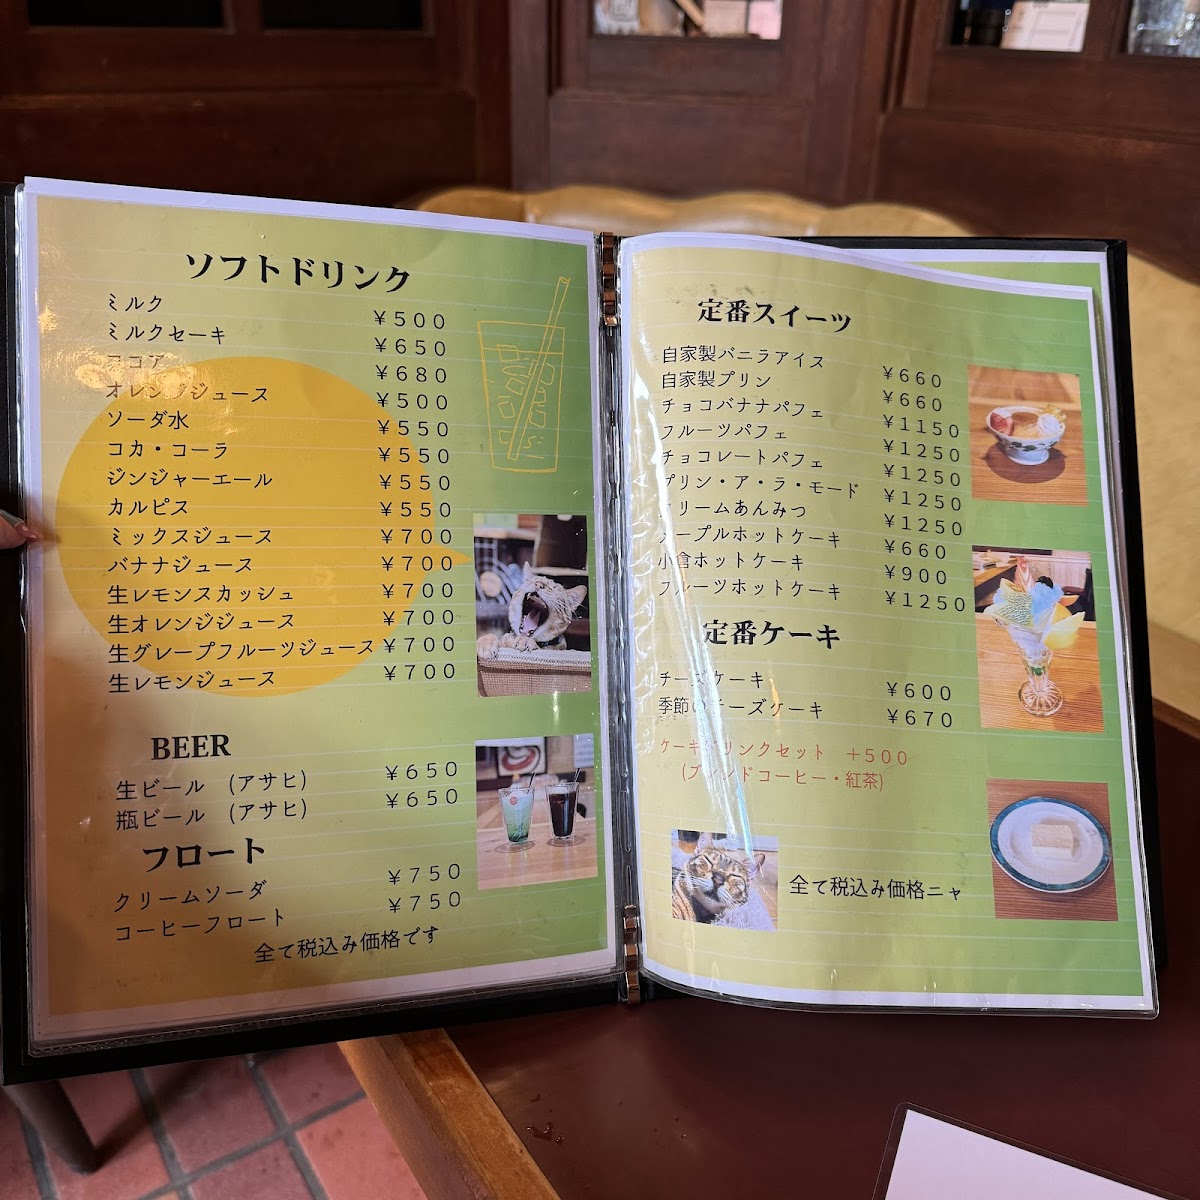 ソフトドリンク
ミルク ￥500
ミルクセーキ ￥650
ココア ￥680
オレンジジュース ￥500
ソーダ水 ￥550
コカ・コーラ ￥550
ジンジャーエール ￥550
カルピス ￥550
ミックスジュース ￥700
バナナジュース ￥700
生レモンスカッシュ ￥700
生オレンジジュース ￥700
生グレープフルーツジュース ￥700
生レモンジュース ￥700
BEER
生ビール (アサヒ) ￥650
瓶ビール (アサヒ) ￥650
フロート
クリームソーダ ￥750
コーヒーフロート ￥750
全て税込み価格です
定番スイーツ
自家製バニラアイス ￥660
自家製プリン ￥660
チョコバナナパフェ ￥1150
フルーツパフェ ￥1250
チョコレートパフェ ￥1250
プリン・ア・ラ・モード ￥1250
クリームあんみつ ￥1250
メープルホットケーキ ￥660
小倉ホットケーキ ￥900
フルーツホットケーキ ￥1250
定番ケーキ
チーズケーキ ￥600
季節のチーズケーキ ￥670
ケーキドリンクセット ＋500
(ブレンドコーヒー・紅茶)
全て税込み価格ニャ